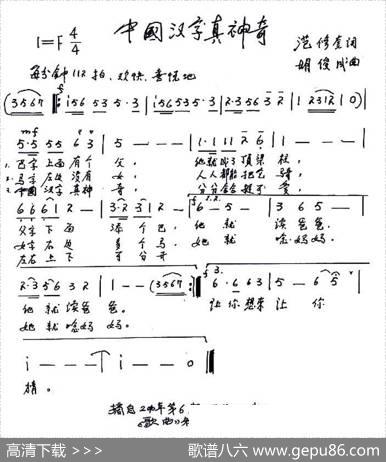 中國汉字真神奇
1=F 4/4
范修奎词
姚俊成曲
每分钟112拍、欢快、喜悦地
(3567
i56 53 5·3 | i56535·3 | 2·3563 2 | 1 2312 | 1 0)
mf
5·5 55 6 3 | 5 - - - | 1·1 11 2 6 | 1 - - - |
1. 巴字上面有个父, 他就成了顶梁柱,
2. 马字左边没有女, 人人都能把它骑,
3. 中國汉字真神奇, 分分合合挺可爱,
6 661 2 - | 3·2 3 1 2 - | 6 - 5 - | 3 6 5 - |
父字下面添个巴, 他就读爸爸,
女字右边多个马, 她就唸妈妈,
左右上下可分开
2·3 56 3 2 | 1 - - (3567 :‖ 6·6 6 3 | 5 - 6 5 |
他就读爸爸。 让你想来让你
她就唸妈妈。
i - - - | i - - 0 ‖
猜。
高清下载 >>>
歌谱八六 www.gepu86.com